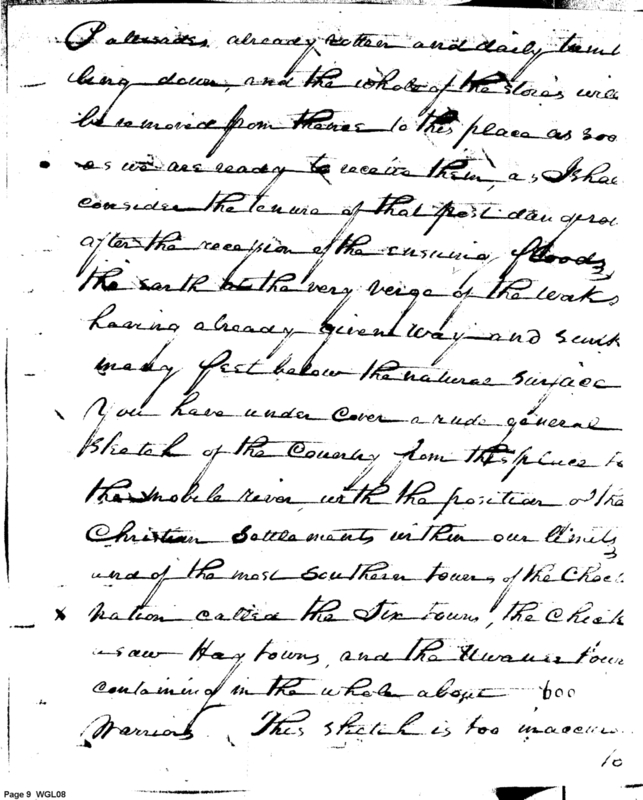 Palisades already rotten and daily tumb
ling down, and the whole of the stores will
be removed from thence to this place as soo
as we are ready to receive them, as I shal
consider the tenure of that post dangerou
after the reception of the ensuing floods,
the earth at the very verge of the works
having already given way and sunk
many feet below the natural surface
You have under cover a rude general
sketch of the Country from this place to
the mobile river, with the position of the
Christian Settlements within our limits,
and of the most Southern towns of the Choct
nation called the Six towns, the Chick
asaw Hay towns, and the town
containing in the whole about 600
Warriors. This sketch is too inaccur
to
Page 9 WGL08